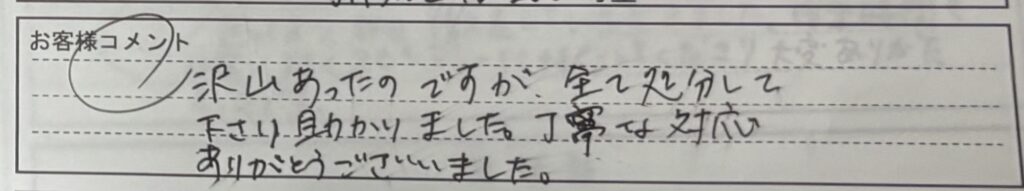 お客様コメント
沢山あったのですが、全て処分して
下さり助かりました。丁寧な対応
ありがとうございいました。